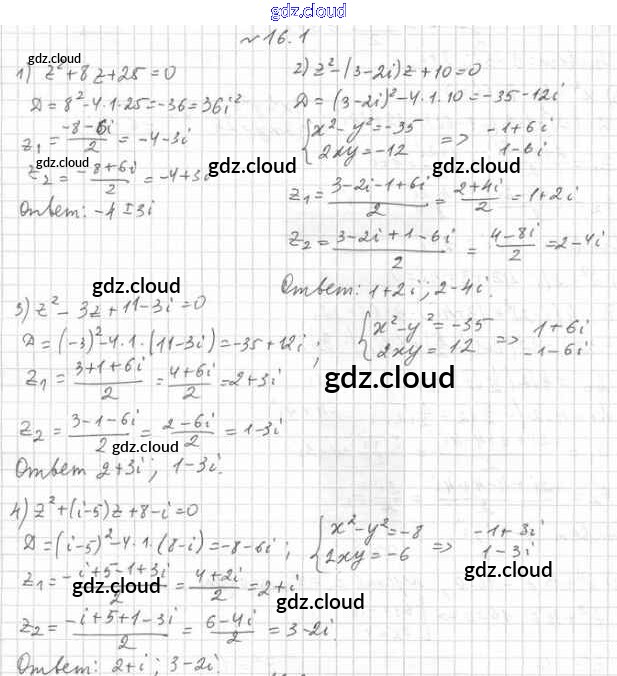 gdz.cloud
№ 16.1
gdz.cloud
1) z² + 8z + 25 = 0
D = 8² - 4·1·25 = -36 = 36i²
z₁ = (-8-6i)/2 = -4-3i
gdz.cloud
z₂ = (-8+6i)/2 = -4+3i
Ответ: -4±3i
2) z² - (3-2i)z + 10 = 0
D = (3-2i)² - 4·1·10 = -35-12i
{x² - y² = -35
2xy = -12 => -1+6i
1-6i
gdz.cloud gdz.cloud
z₁ = (3-2i-1+6i)/2 = (2+4i)/2 = 1+2i
z₂ = (3-2i+1-6i)/2 = (4-8i)/2 = 2-4i
Ответ: 1+2i; 2-4i.
gdz.cloud
3) z² - 3z + 11-3i = 0
D = (-3)² - 4·1·(11-3i) = -35+12i;
{x² - y² = -35
2xy = 12 => 1+6i
-1-6i
z₁ = (3+1+6i)/2 = (4+6i)/2 = 2+3i
gdz.cloud
z₂ = (3-1-6i)/2 = (2-6i)/2 = 1-3i
gdz.cloud
Ответ 2+3i; 1-3i.
4) z² + (i-5)z + 8-i = 0
D = (i-5)² - 4·1·(8-i) = -8-6i;
{x² - y² = -8
2xy = -6 => -1+3i
1-3i
gdz.cloud
z₁ = (-i+5-1+3i)/2 = (4+2i)/2 = 2+i
gdz.cloud gdz.cloud
z₂ = (-i+5+1-3i)/2 = (6-4i)/2 = 3-2i.
Ответ: 2+i; 3-2i.